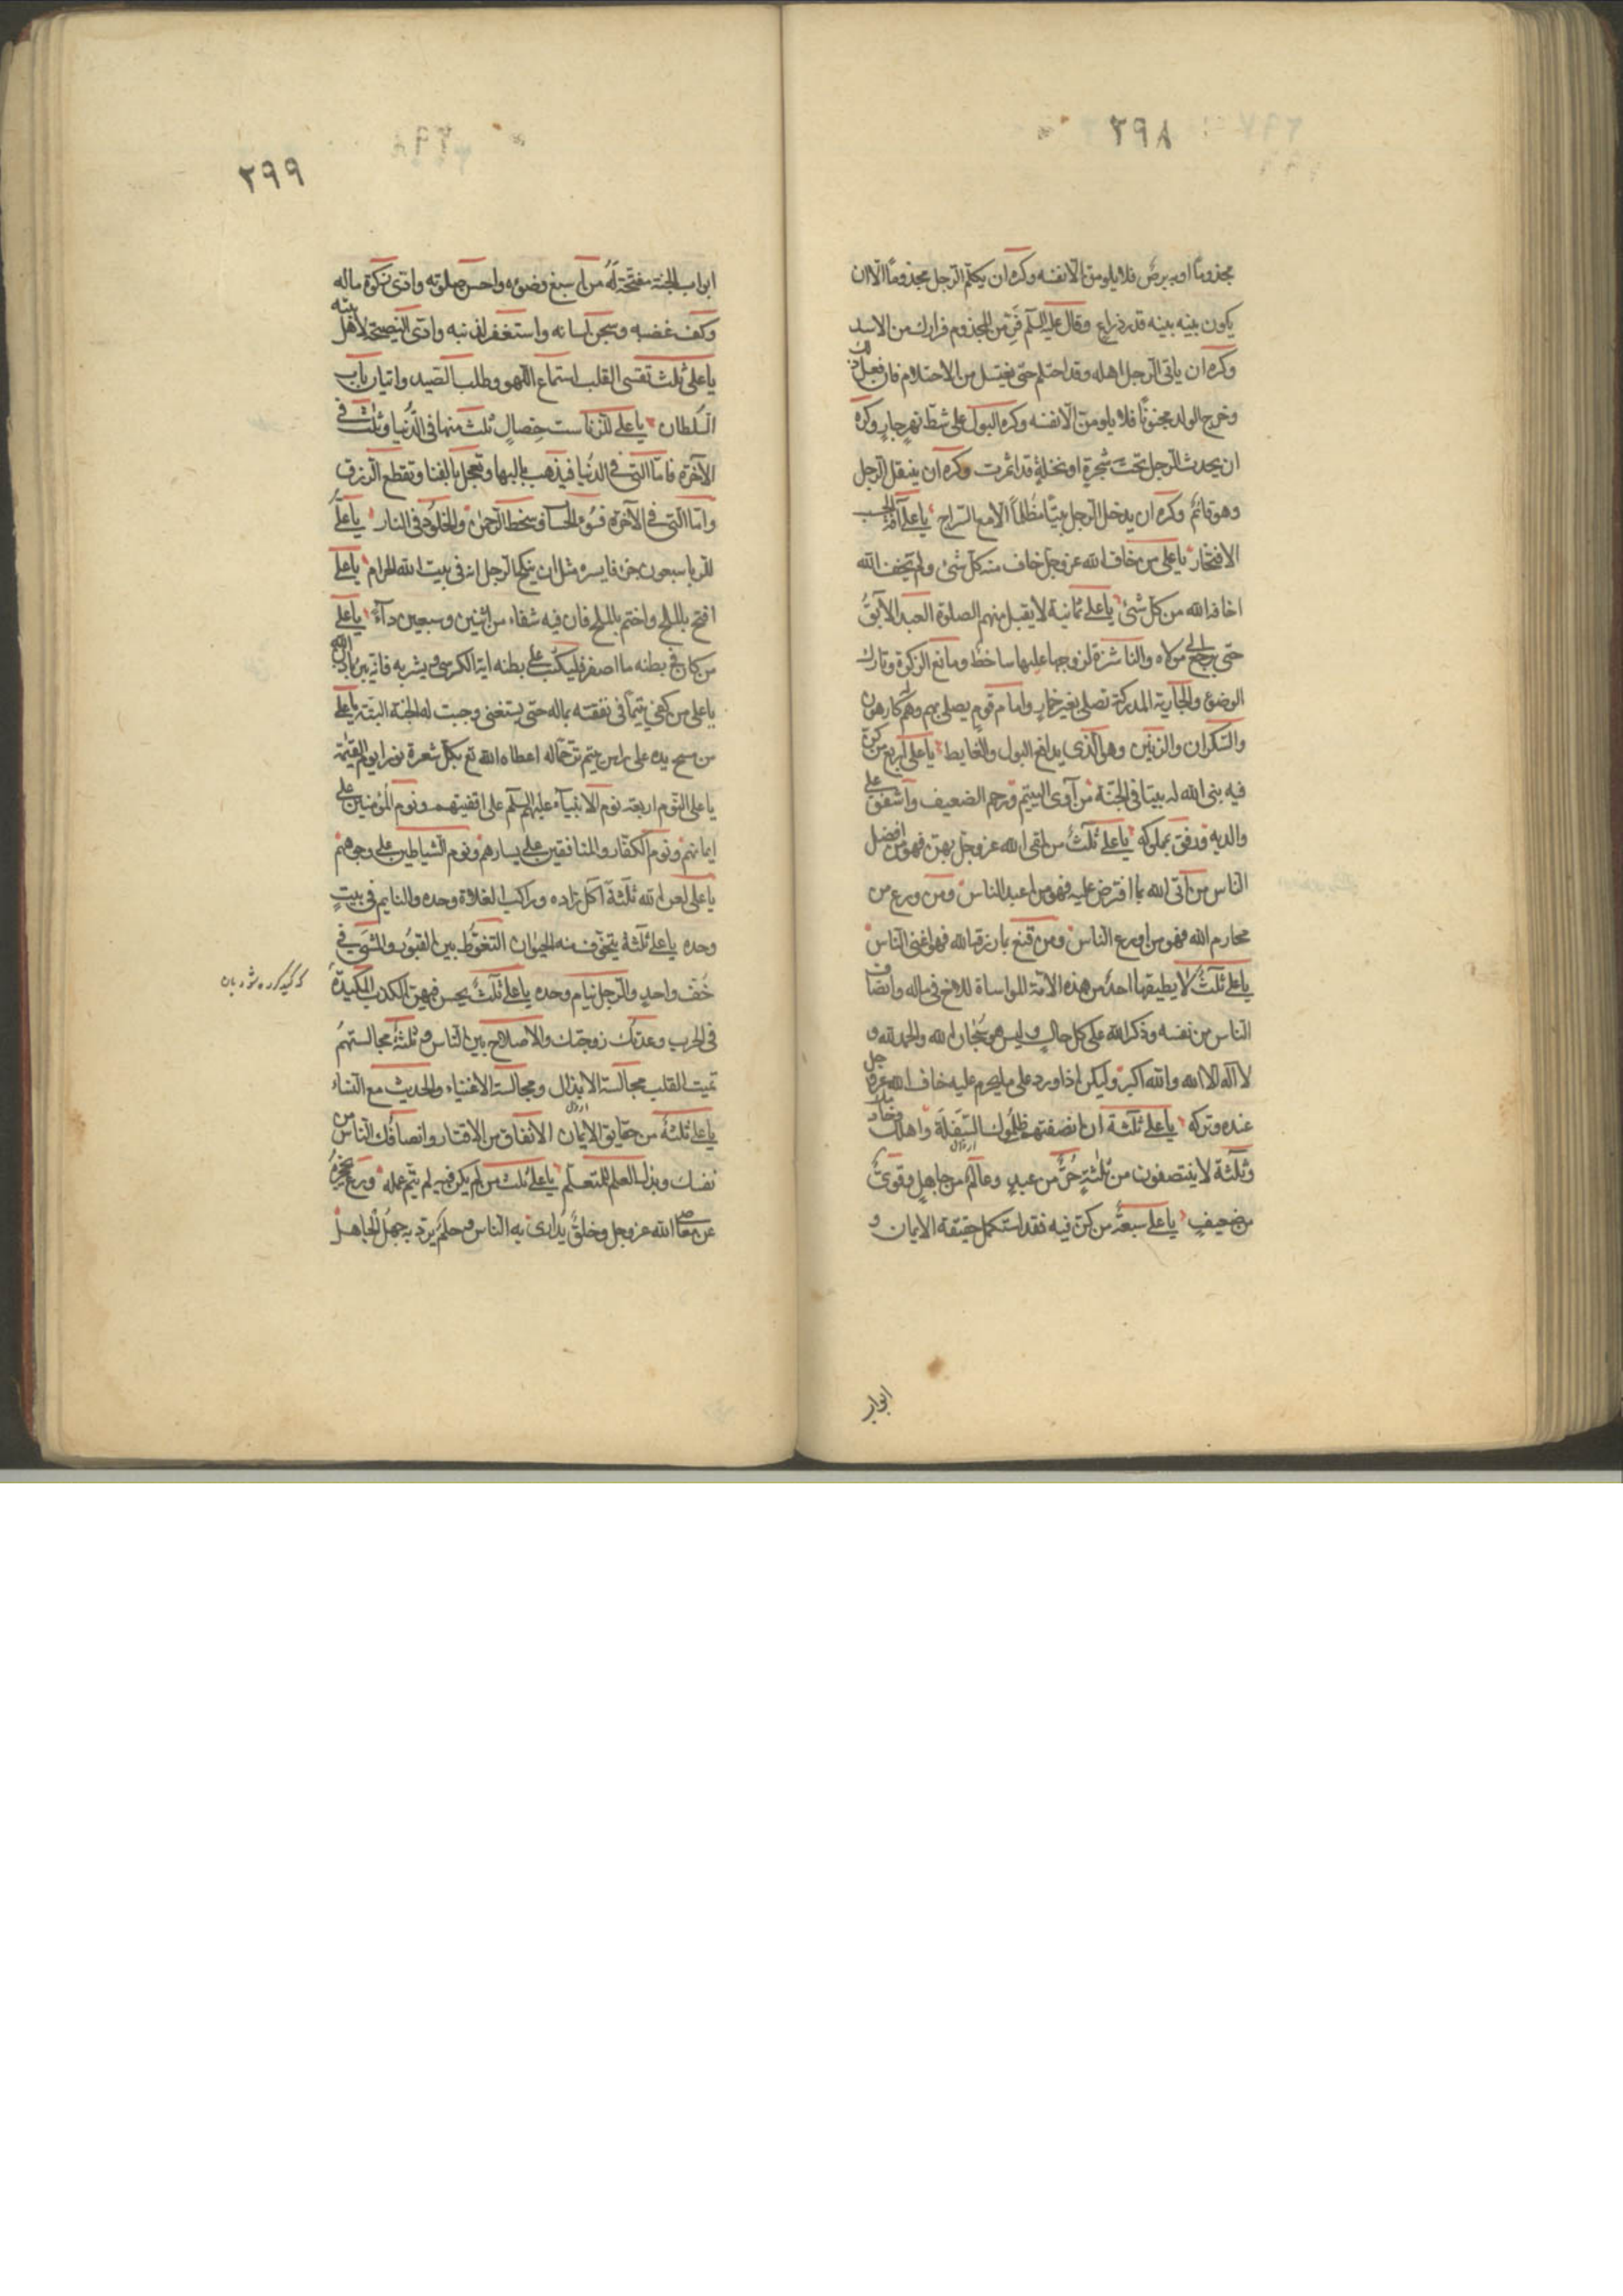 ٢٩٨
مجذوما او به برص فلا يلومن الا نفسه وكره ان يكلم الرجل مجذوما الا ان
يكون بينه بينه قدر ذراع وقال عليه السلم فر من المجذوم فرارك من الاسد
وكره ان ياتى الرجل اهله وقد احتلم حتى يغتسل من الاحتلام فان فعل ذلك
وخرج الولد مجنونا فلا يلومن الا نفسه وكره البول على شط نهر جار وكره
ان يحدث الرجل تحت شجرة او نخلة قد اثمرت وكره ان يتنعل الرجل
وهو قائم وكره ان يدخل الرجل بيتا مظلما الا مع السراج يا على آفة الحسب
الافتخار يا على من خاف الله عز وجل خاف منه كل شئ ولم يخف الله
اخافه الله من كل شئ يا على ثمانية لا يقبل منهم الصلوة العبد الآبق
حتى يرجع الى مولاه والناشزة لزوجها عليها ساخط ومانع الزكوة وتارك
الوضوء والجارية المدركة تصلى بغير خمار وامام قوم يصلى بهم وهم له كارهون
والسكران والزنين وهو الذى يدافع البول والغايط يا على اربع من كن
فيه بنى الله له بيتا فى الجنة من آوى اليتيم ورحم الضعيف واشفق على
والديه ورفق بمملوكه يا على ثلث من لقى الله عز وجل بهن فهو من افضل
الناس من اتى الله بما افترض عليه فهو من اعبد الناس ومن ورع من
محارم الله فهو من اورع الناس ومن قنع بما رزقه الله فهو اغنى الناس
يا على ثلث لا يطيقها احد من هذه الامة المواساة للاخ فى ماله وانصاف
الناس من نفسه وذكر الله على كل حال وليس هو سبحان الله والحمد لله و
لا اله الا الله والله اكبر ولكن اذا ورد على ما يحرم عليه خاف الله عز وجل
عنده وتركه يا على ثلثة ان انصفتهم ظلموك السفلة واهلك وخادمك
وثلثة لا ينتصفون من ثلثة حر من عبد وعالم من جاهل وقوى
من ضعيف يا على سبعة من كن فيه فقد استكمل حقيقة الايمان و
ابواب
٢٩٩
ابواب الجنة مفتحة له من اسبغ وضوءه واحسن صلوته وادى زكوة ماله
وكف غضبه وسجن لسانه واستغفر لذنبه وادى النصيحة لاهل بيته
يا على ثلث تقسى القلب استماع اللهو وطلب الصيد واتيان باب
السلطان يا على للزنا ست خصال ثلث منها فى الدنيا وثلث فى
الآخرة فاما التى فى الدنيا فيذهب بالبها وتعجل بالفنا وتقطع الرزق
واما التى فى الآخرة فسوء الحساب وسخط الرحمن والخلود فى النار يا على
الربا سبعون جزءا فايسره مثل ان ينكح الرجل امه فى بيت الله الحرام يا على
افتح بالملح واختم بالملح فان فيه شفاء من اثنين وسبعين داء يا على
من كان فى بطنه ماء اصفر فليكتب على بطنه اية الكرسى ويشربه فانه يبرء باذن الله
يا على من كفى يتيما فى نفقته بماله حتى يستغنى وجبت له الجنة البتة يا على
من مسح يده على راس يتيم ترحما له اعطاه الله تع بكل شعرة نورا يوم القيمة
يا على النوم اربعة نوم الانبياء عليهم السلم على اقفيتهم ونوم المؤمنين على
ايمانهم ونوم الكفار والمنافقين على يسارهم ونوم الشياطين على وجوههم
يا على لعن الله ثلثة آكل زاده وراكب الفلاة وحده والنايم فى بيت
وحده يا على ثلثة يتخوف منه الجنون التغوط بين القبور والمشى فى
خف واحد والرجل نيام وحده يا على ثلث يحسن فيهن الكذب المكيدة
فى الحرب وعدتك زوجتك والاصلاح بين الناس وثلثة مجالستهم
تميت القلب مجالسة الانذال ومجالسة الاغنياء والحديث مع النساء
يا على ثلثة من حقايق الايمان الانفاق من الاقتار وانصافك الناس من
نفسك وبذل العلم للمتعلم يا على ثلث من لم يكن فيه لم يتم عمله ورع يحجزه
عن معاصى الله عز وجل وخلق يدارى به الناس وحلم يرد به جهل الجاهل